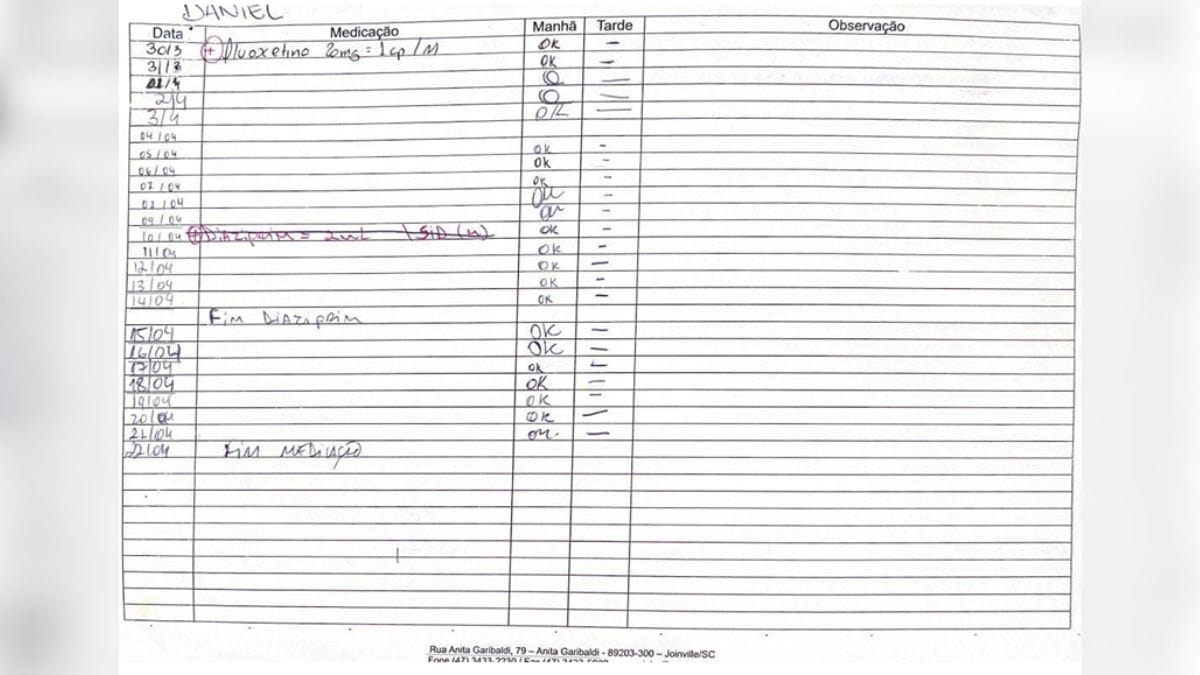 DANIEL
Data Medicação Manhã Tarde Observação
30/3 + fluoxetino 20mg = 1cp/M OK –
31/3 OK –
01/4 O –
2/4 O –
3/4 OK –
04/04
05/04 OK –
06/04 OK –
07/04 OK –
–
09/04 –
10/04 + Diaziprim = 2mL 1 SID (M) OK –
11/04 OK –
12/04 OK –
13/04 OK –
14/04 OK –
Fim Diaziprim
15/04 OK –
16/04 OK –
17/04 ok –
18/04 OK –
19/04 OK –
20/04 OK –
21/04 –
22/04 FIM MEDICAÇÃO
Rua Anita Garibaldi, 79 – Anita Garibaldi - 89203-300 – Joinville/SC